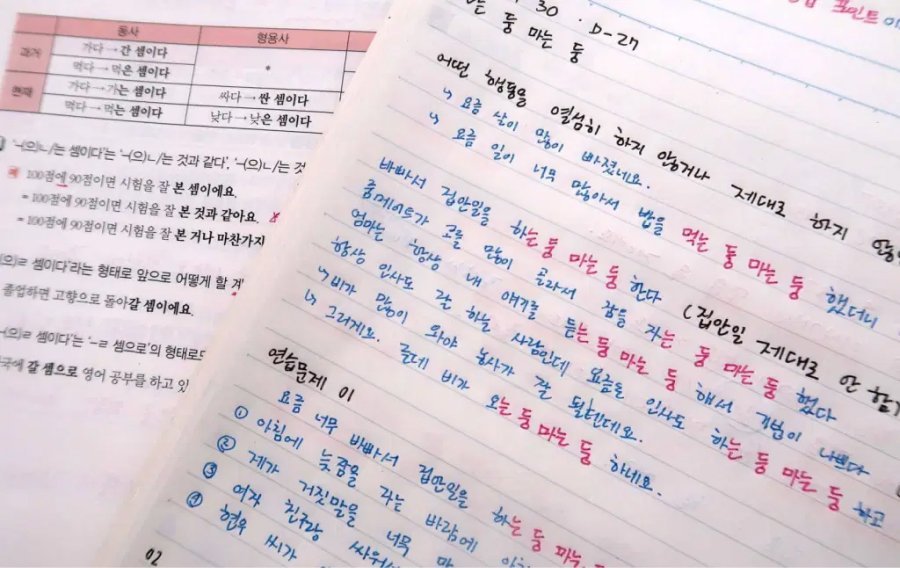 동사 형용사
과거 가다 → 간 셈이다 *
먹다 → 먹은 셈이다
현재 가다 → 가는 셈이다 싸다 → 싼 셈이다
먹다 → 먹는 셈이다 낮다 → 낮은 셈이다
'-(으)ㄴ/는 셈이다'는 '-(으)ㄴ/는 것과 같다', '-(으)ㄴ/는 것
예 100점에 90점이면 시험을 잘 본 셈이에요.
= 100점에 90점이면 시험을 잘 본 것과 같아요.
= 100점에 90점이면 시험을 잘 본 거나 마찬가지
(으)ㄹ 셈이다'라는 형태로 앞으로 어떻게 할 계
졸업하면 고향으로 돌아갈 셈이에요.
-(으)ㄹ 셈이다'는 '-ㄹ 셈으로'의 형태로
갈 셈으로 영어 공부를 하고 있
포인트
30 · D-27
는 둥 마는 둥
어떤 행동을 열심히 하지 않거나 제대로 하지
↳ 요즘 살이 많이 빠졌네요.
↳ 요즘 일이 너무 많아서 밥을 먹는 둥 마는 둥 했더니
바빠서 집안일을 하는 둥 마는 둥 한다 (집안일 제대로 안 함
룸메이트가 코를 많이 골아서 잠을 자는 둥 마는 둥 했다
엄마는 항상 내 얘기를 듣는 둥 마는 둥 해서 기분이 나쁘다
항상 인사도 잘 하는 사람인데 요즘은 인사도 하는 둥 마는 둥 하고
↳ 비가 많이 와야 농사가 잘 될텐데요.
↳ 그러게요. 근데 비가 오는 둥 마는 둥 하네요.
연습문제 01
요즘 너무 바빠서 집안일을 하는 둥 마는
① 아침에 늦잠을 자는 바람에
② 제가 거짓말을 너무
③ 여자 친구랑 싸워서
④ 현우 씨가
02